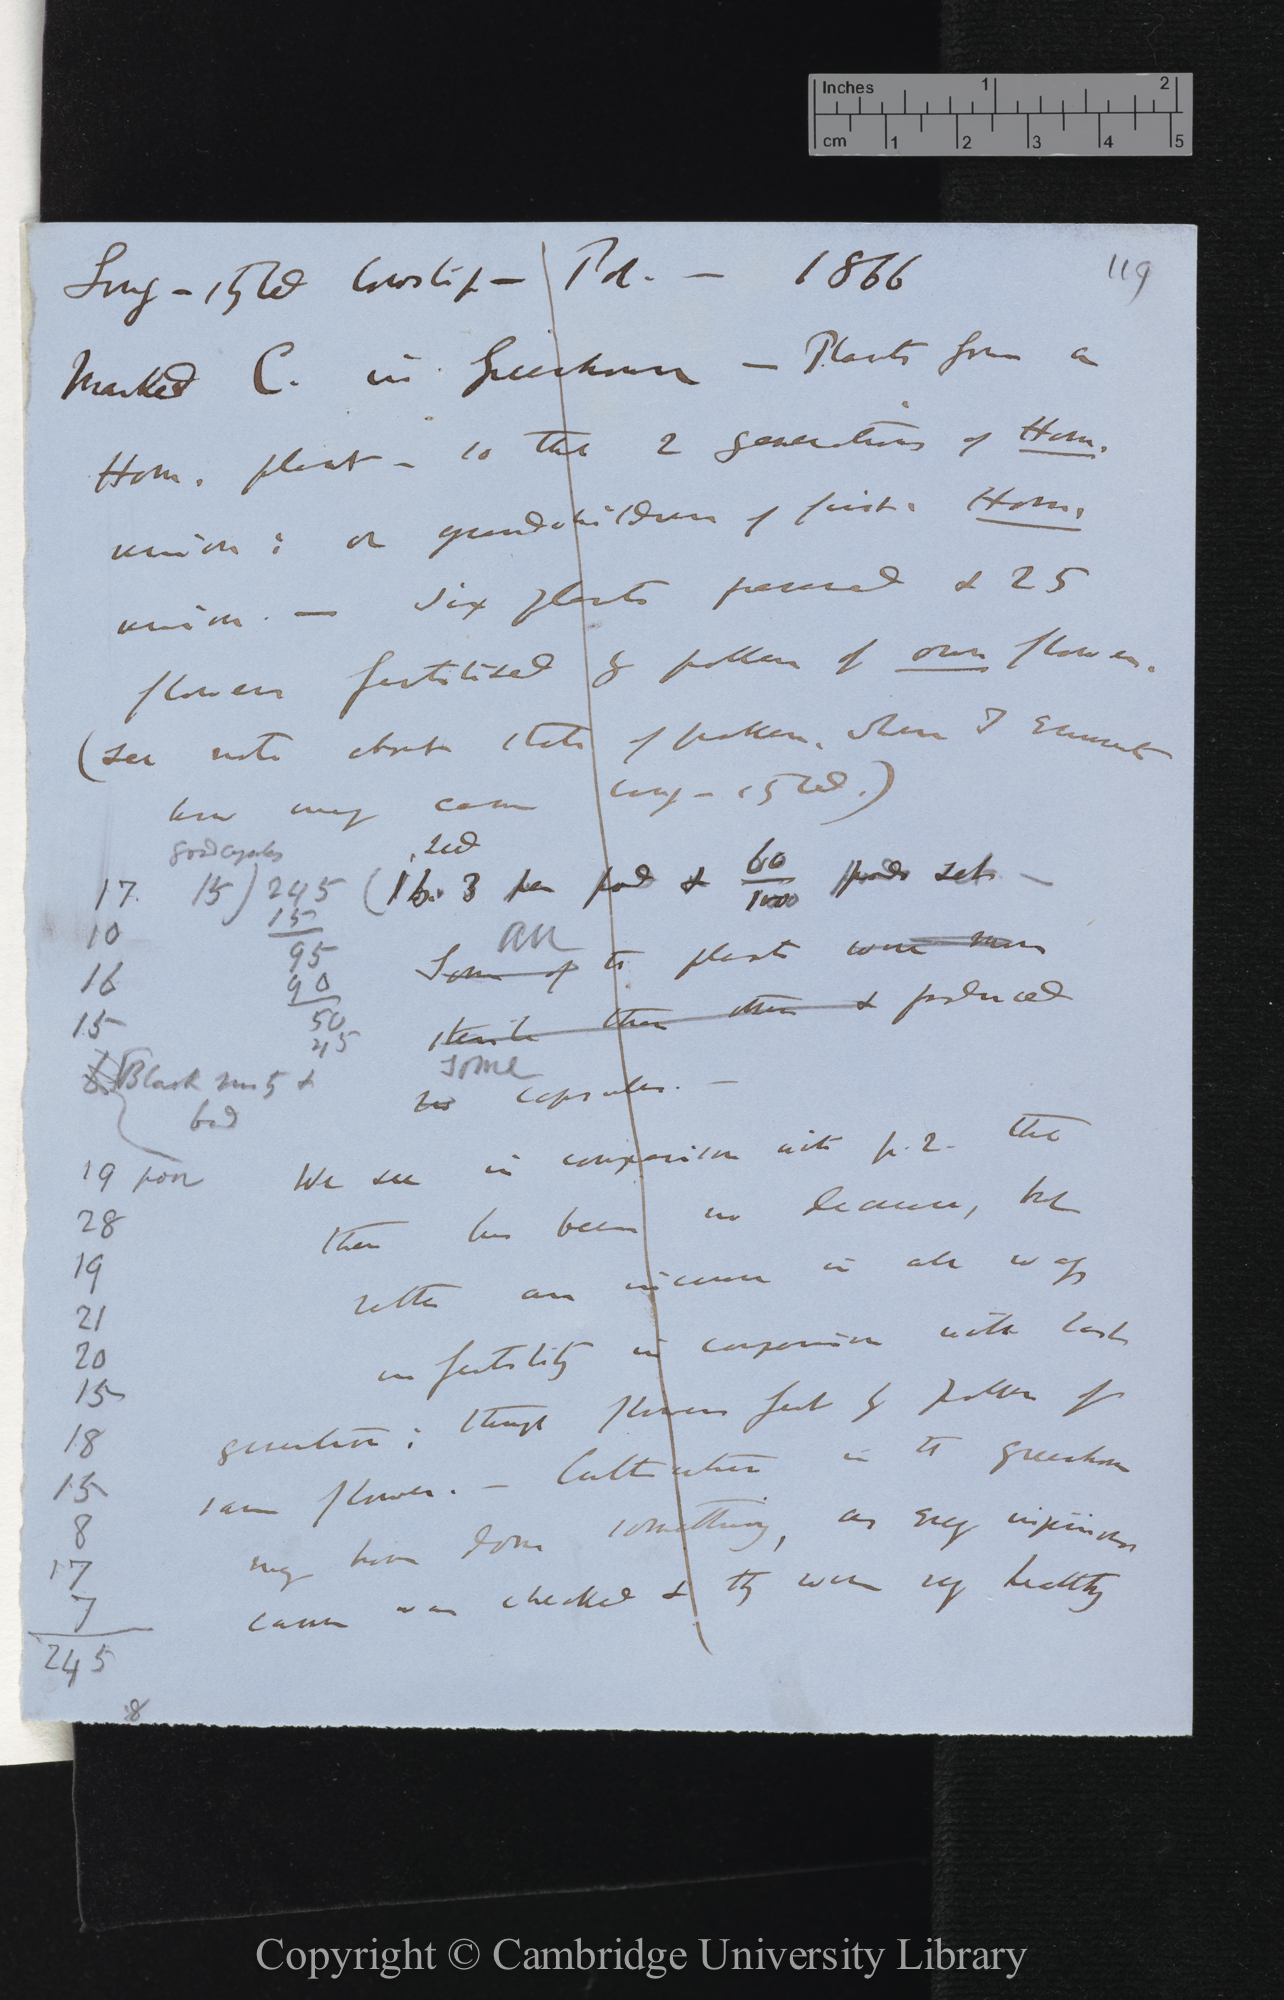 Inches 1 2
cm 1 2 3 4 5
119
Long-styled Cowslip — Pol. — 1866
Marked C. in Greenhouse — Plants from a
Hom. plant — so the 2 generations of Hom.
union; or grandchildren of first Hom.
union. — Six plants & 25
flowers fertilised by pollen of own flower.
(see note about state of pollen, when I
how many came long-styled.)
good capsules
seed
17. 15) 245 (16.3 per pod & 60/100 pods set —
10 15
16 95
90
15 50
45
all
Some of the plants were more
sterile than others & produced
some
no capsules. —
Black & bad
19 poor We see in comparison with p. 2. that
28 there has been no decrease, but
19 rather an increase in all ways
21 in fertility in comparison with last
20
15
18 generation; though flowers fert by pollen of
15 same flower. — Cultivation in the greenhouse
8 may have done something, as every injurious
17 cause was checked & they were very healthy
7
245
8
Copyright © Cambridge University Library